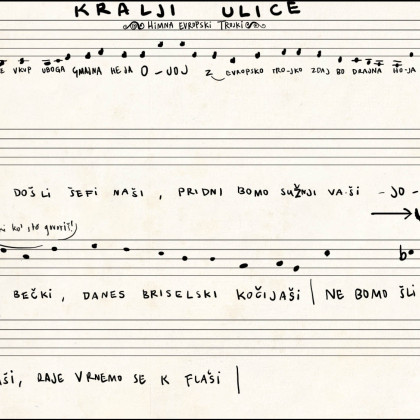 KRALJI ULICE
HIMNA EVROPSKI TROJKI
VKUP UBOGA GMAJNA HEJA O-JOJ Z EVROPSKO TRO-JKO ZDAJ BO DRAJNA HO-JA
DOŠLI ŠEFI NAŠI, PRIDNI BOMO SUŽNJI VA-ŠI -JO-
BEČKI, DANES BRISELSKI KOČIJAŠI | NE BOMO ŠLI
AŠI, RAJE VRNEMO SE K FLAŠI |